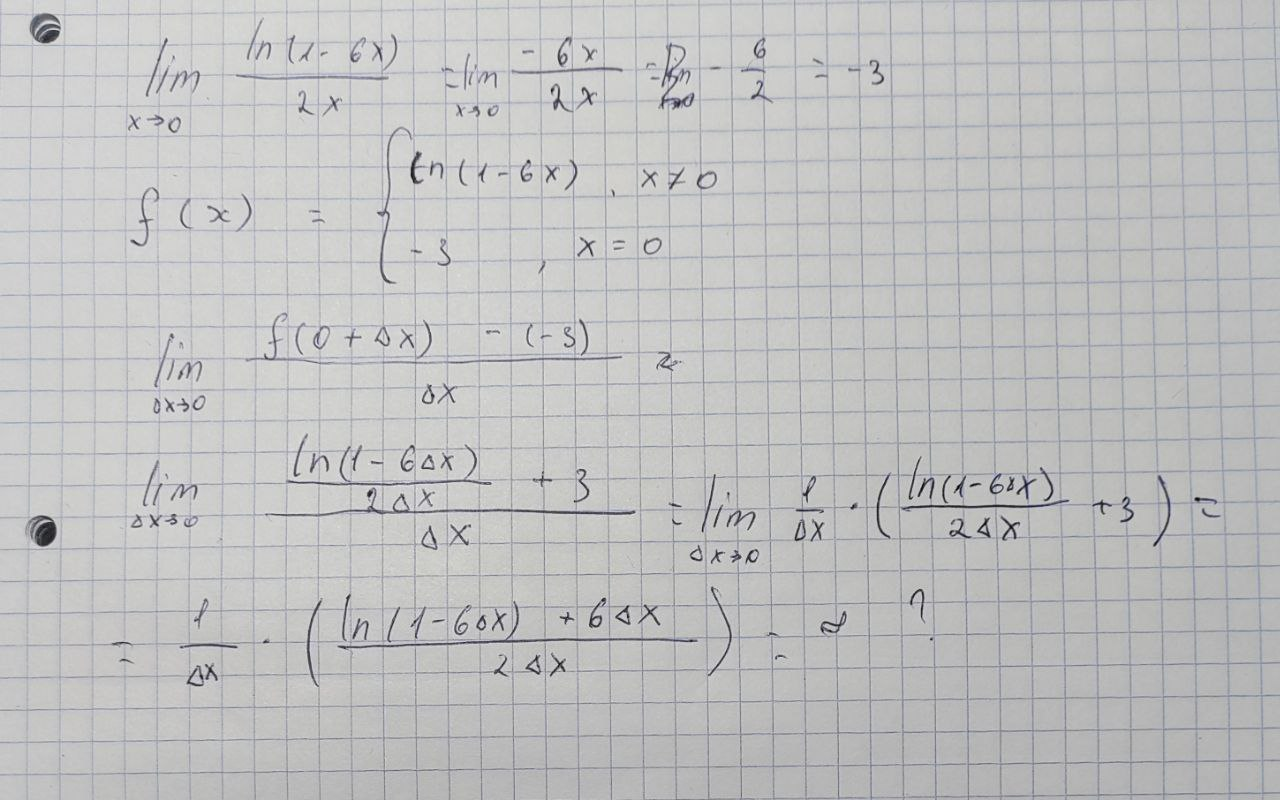 lim x→0 ln(1-6x) / 2x = lim x→0 -6x / 2x = - 6/2 = -3
f(x) = { ln(1-6x), x≠0
-3, x=0
lim Δx→0 f(0+Δx) - (-3) / Δx =
lim Δx→0 (ln(1-6Δx) / 2Δx + 3) / Δx = lim Δx→0 1/Δx · (ln(1-6Δx) / 2Δx +3) =
= 1/Δx · (ln(1-6Δx) +6Δx / 2Δx) = ∞ ?